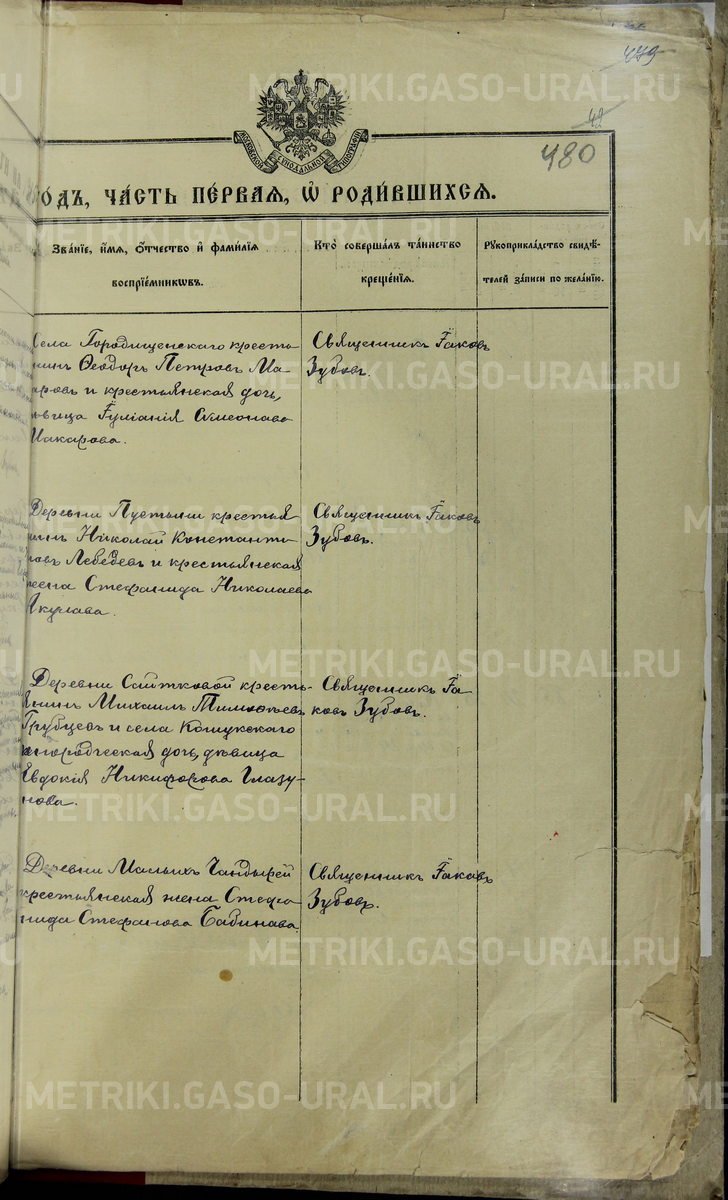 METRIKI.GASO-URAL.RU
479
42
480
МОСКОВСКОЙ СѴНОДАЛЬНОЙ ТИПОГРАФІИ
ГО́ДЪ, ЧА́СТЬ ПЕ́РВАЯ, Ѽ РОДИ́ВШИХСЯ.
Зва́нїе, и҆́мя, ѻ҆́тчество и҆ фами́лїя воспрїе́мникѡвъ.
Кто̀ соверша́лъ та́инство креще́нїя.
Рꙋкоприкла́дство свидѣ́телей за́писи по жела́нїю.
Села Городищенскаго кресть
нинъ Ѳеодоръ Петровъ Ма
каровъ и крестьянская дочь,
девица Іуліанія Симеонова
Макарова.
Священникъ Іаковъ
Зубовъ.
Деревни Пустыни крестья
нинъ Николай Константи
новъ Лебедевъ и крестьянская
жена Стефанида Николаева
Акулова.
Священникъ Іаковъ
Зубовъ.
Деревни Сайтковой кресть-
янинъ Михаилъ Тимоѳеевъ
Трубцевъ и села Кошукскаго
инородческая дочь, дѣвица
Евдокія Никифорова Глазу-
нова.
Священникъ Іа
ковъ Зубовъ.
Деревни Малыхъ Чандырей
крестьянская жена Стефа
нида Стефанова Бабинова.
Священникъ Іаковъ
Зубовъ.